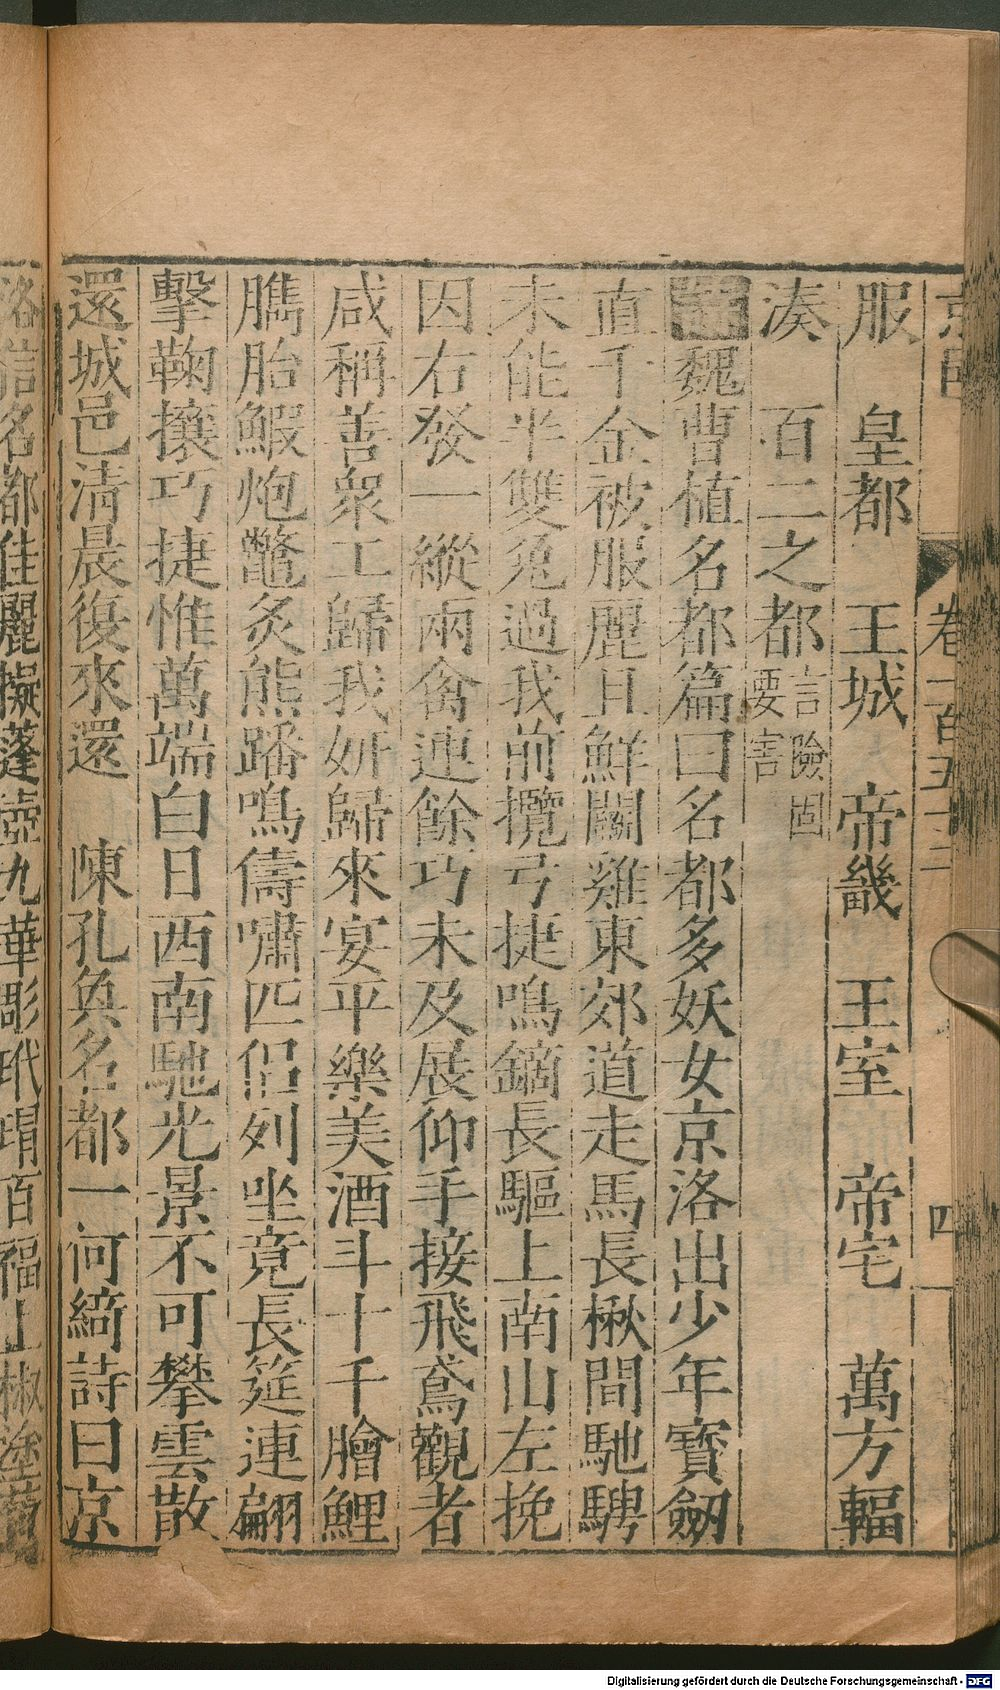 服　皇都　王城　帝畿　王室　帝宅　萬方輻
湊　百二之都言險固要害
魏曹植名都篇曰名都多妖女京洛出少年寶劒
直千金被服麗且鮮鬬雞東郊道走馬長楸間馳騁
未能半雙兎過我前攬弓捷鳴鏑長驅上南山左挽
因右發一縱兩禽連餘巧未及展仰手接飛鳶觀者
咸稱善衆工歸我妍歸來宴平樂美酒斗十千膾鯉
臇胎鰕炮鼈炙熊蹯鳴儔嘯匹侶列坐竟長筵連翩
擊鞠攘巧捷惟萬端白日西南馳光景不可攀雲散
還城邑清晨復來還　陳孔奐名都一何綺詩曰京
洛信名都佳麗擬蓬壺九華彫玳瑁百福上椒塗
卷一百五十三
四
Digitalisierung gefördert durch die Deutsche Forschungsgemeinschaft - DFG